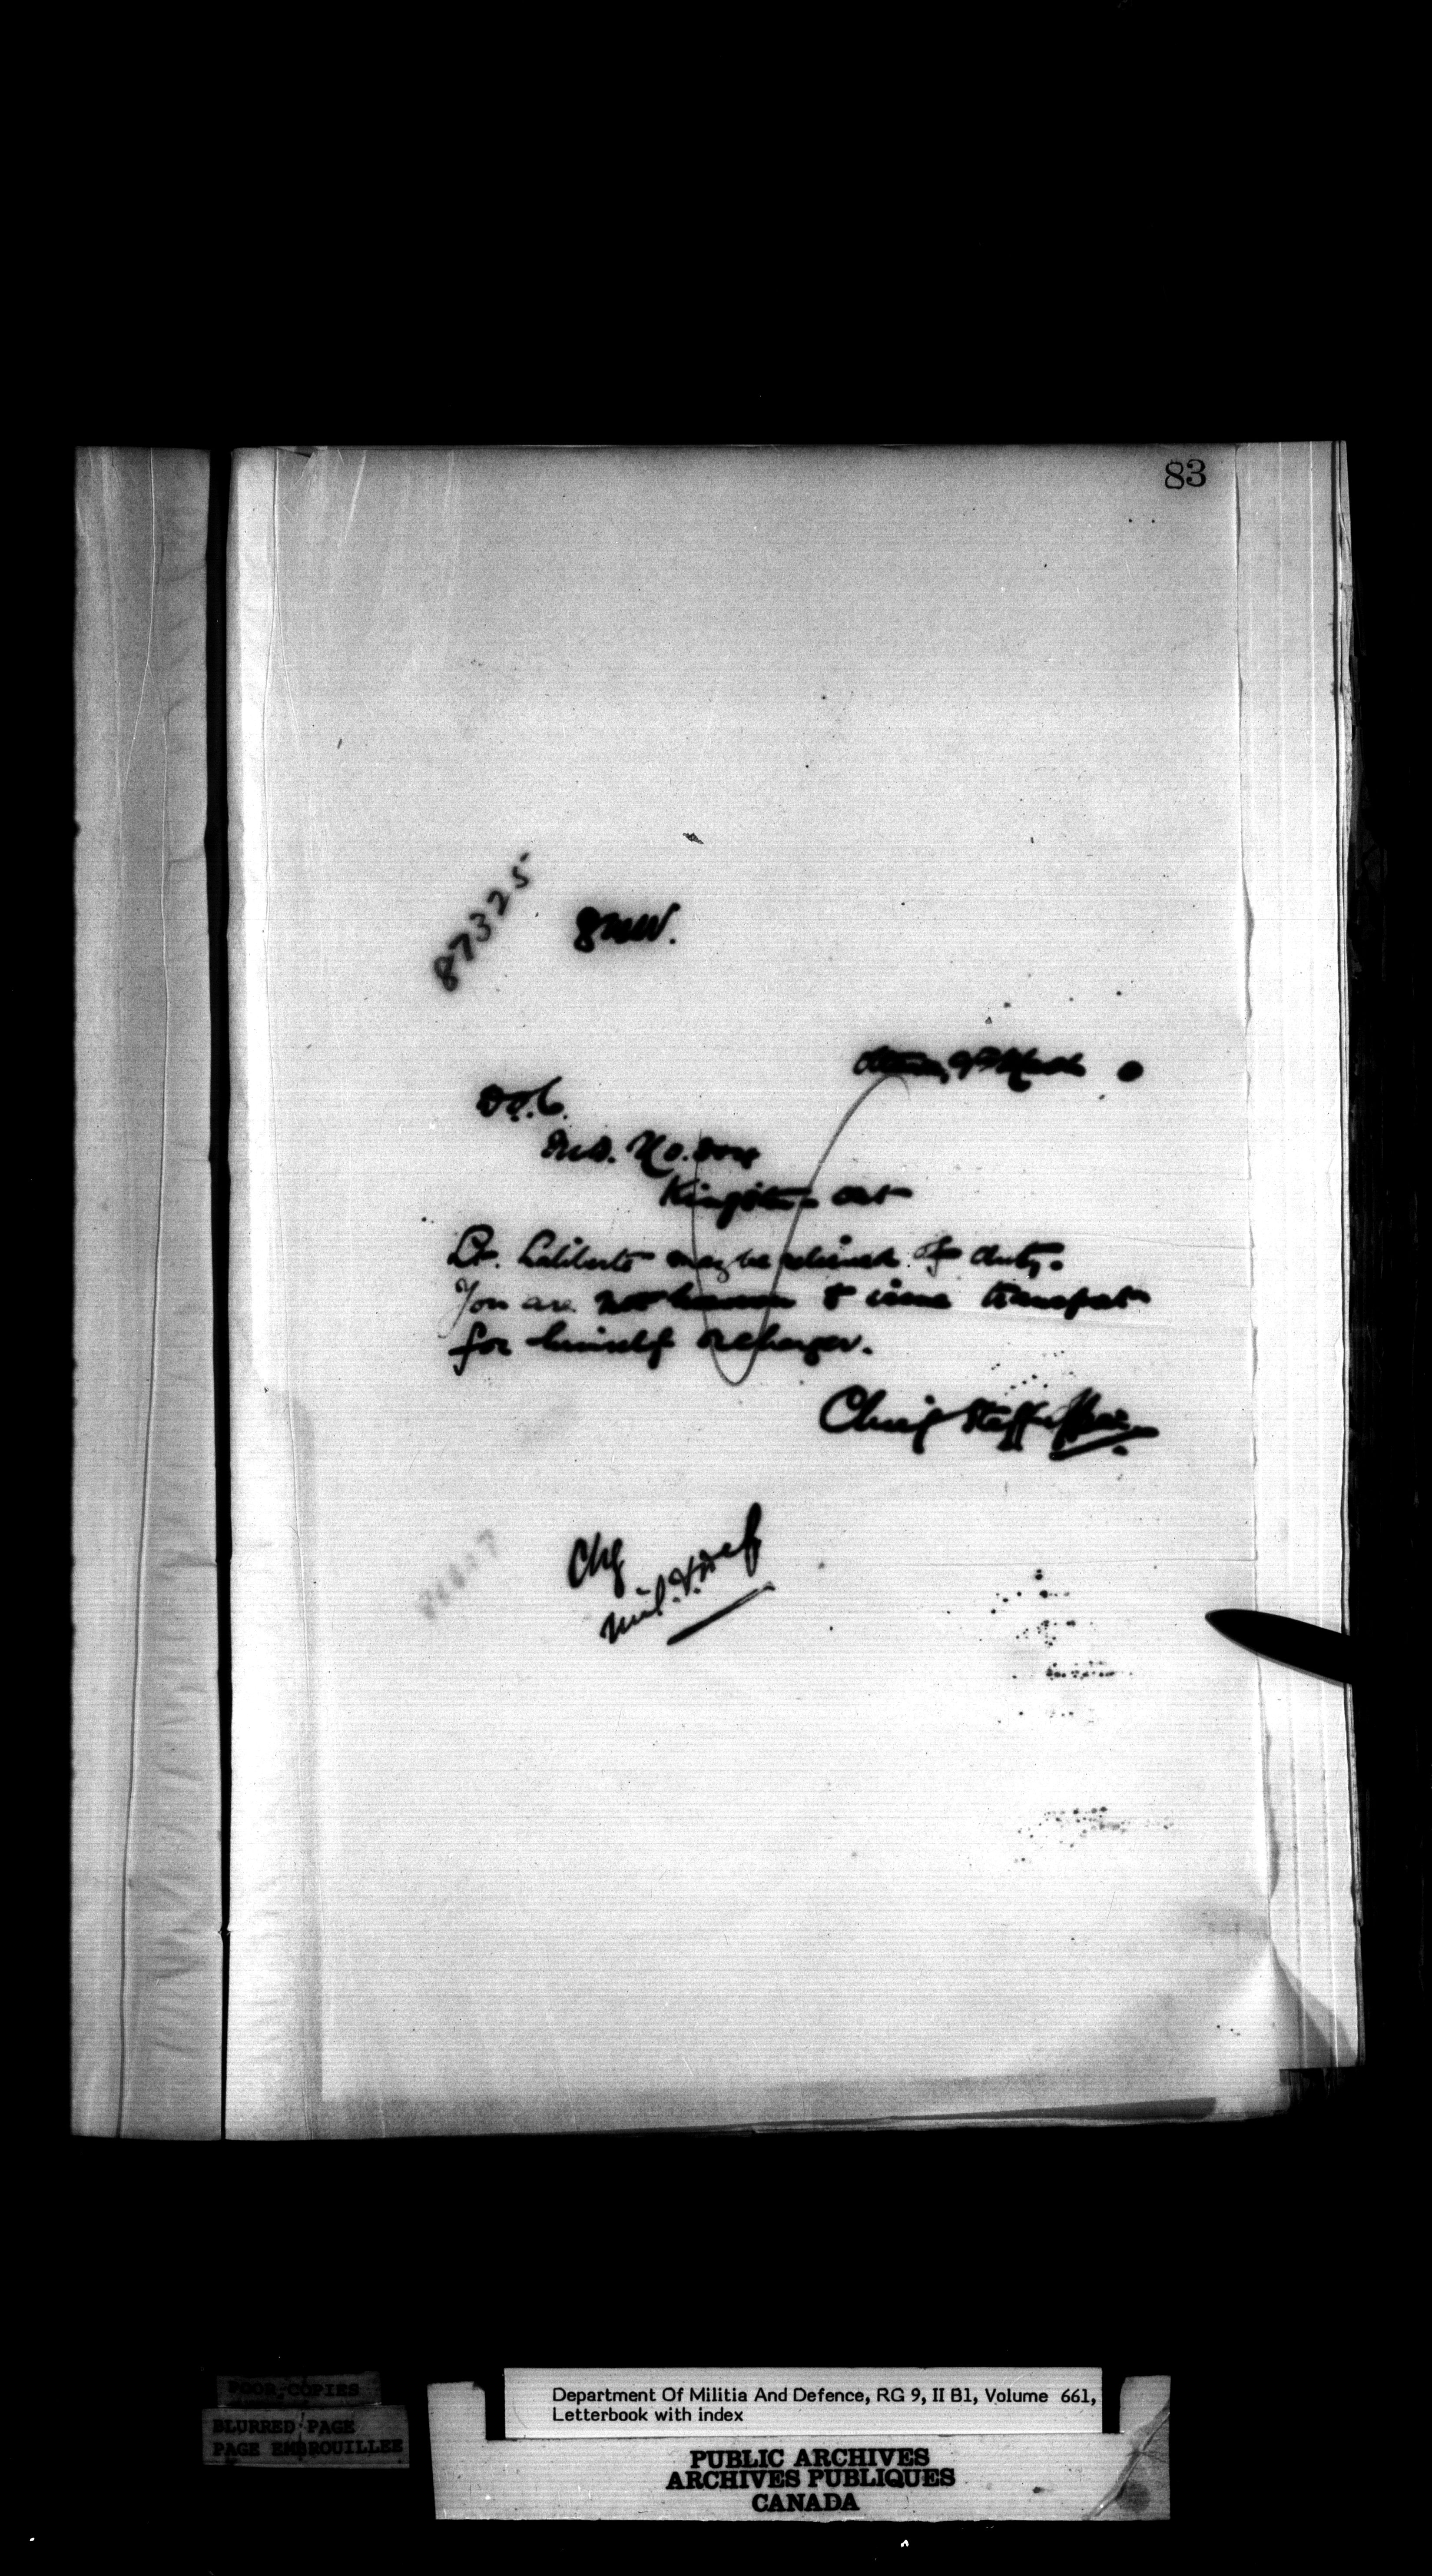 83
87325
8 MW.
Ottawa, 9th March 0
D.O.C.
M.D. No. four
Kingston Ont
Lt. Laliberte may be relieved of duty.
You are not to issue transport
for himself or charger.
Chief Staff Officer
Chg
Mil. & Def
POOR COPIES
BLURRED PAGE
PAGE EMBROUILLEE
Department Of Militia And Defence, RG 9, II B1, Volume 661,
Letterbook with index
PUBLIC ARCHIVES
ARCHIVES PUBLIQUES
CANADA